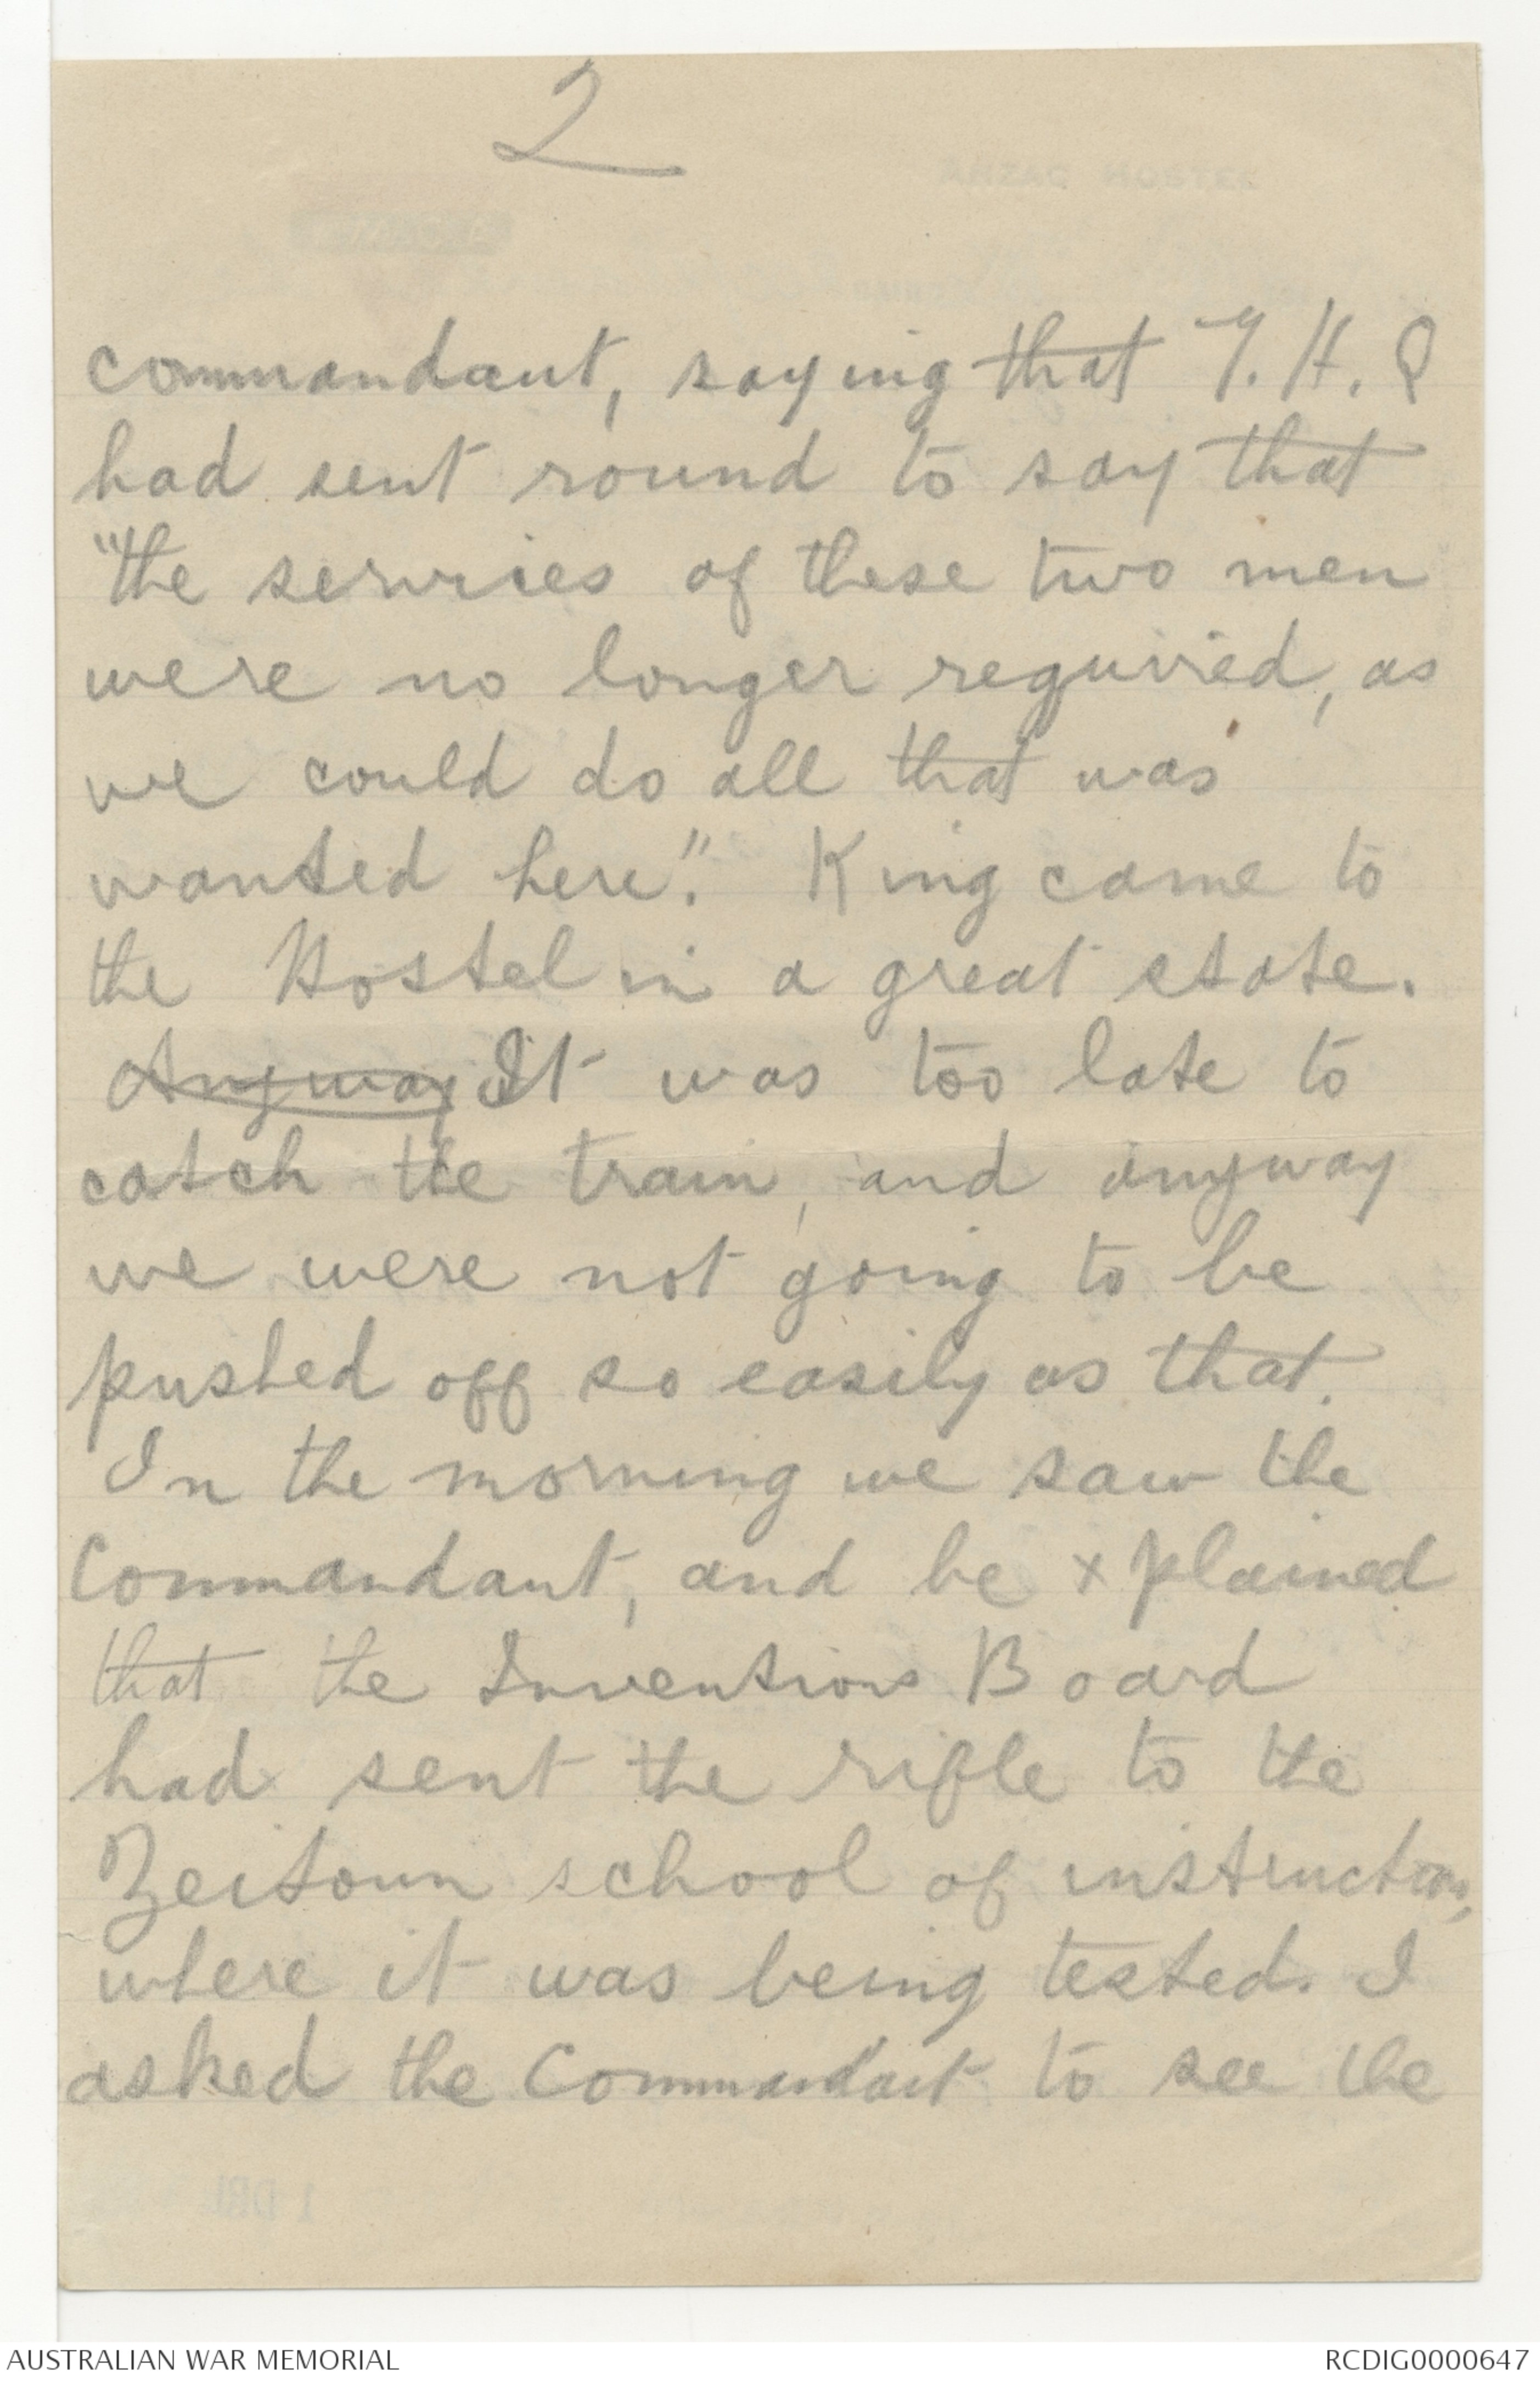 2
commandant, saying that G.H.Q
had sent round to say that
"the services of these two men
were no longer required, as
we could do all that was
wanted here". King came to
the Hostel in a great state.
Anyway It was too late to
catch the train, and anyway
we were not going to be
pushed off so easily as that.
In the morning we saw the
Commandant, and he xplained
that the Inventions Board
had sent the rifle to the
Zeitoun school of instruction,
where it was being tested. I
asked the Commandant to see the
AUSTRALIAN WAR MEMORIAL
RCDIG0000647